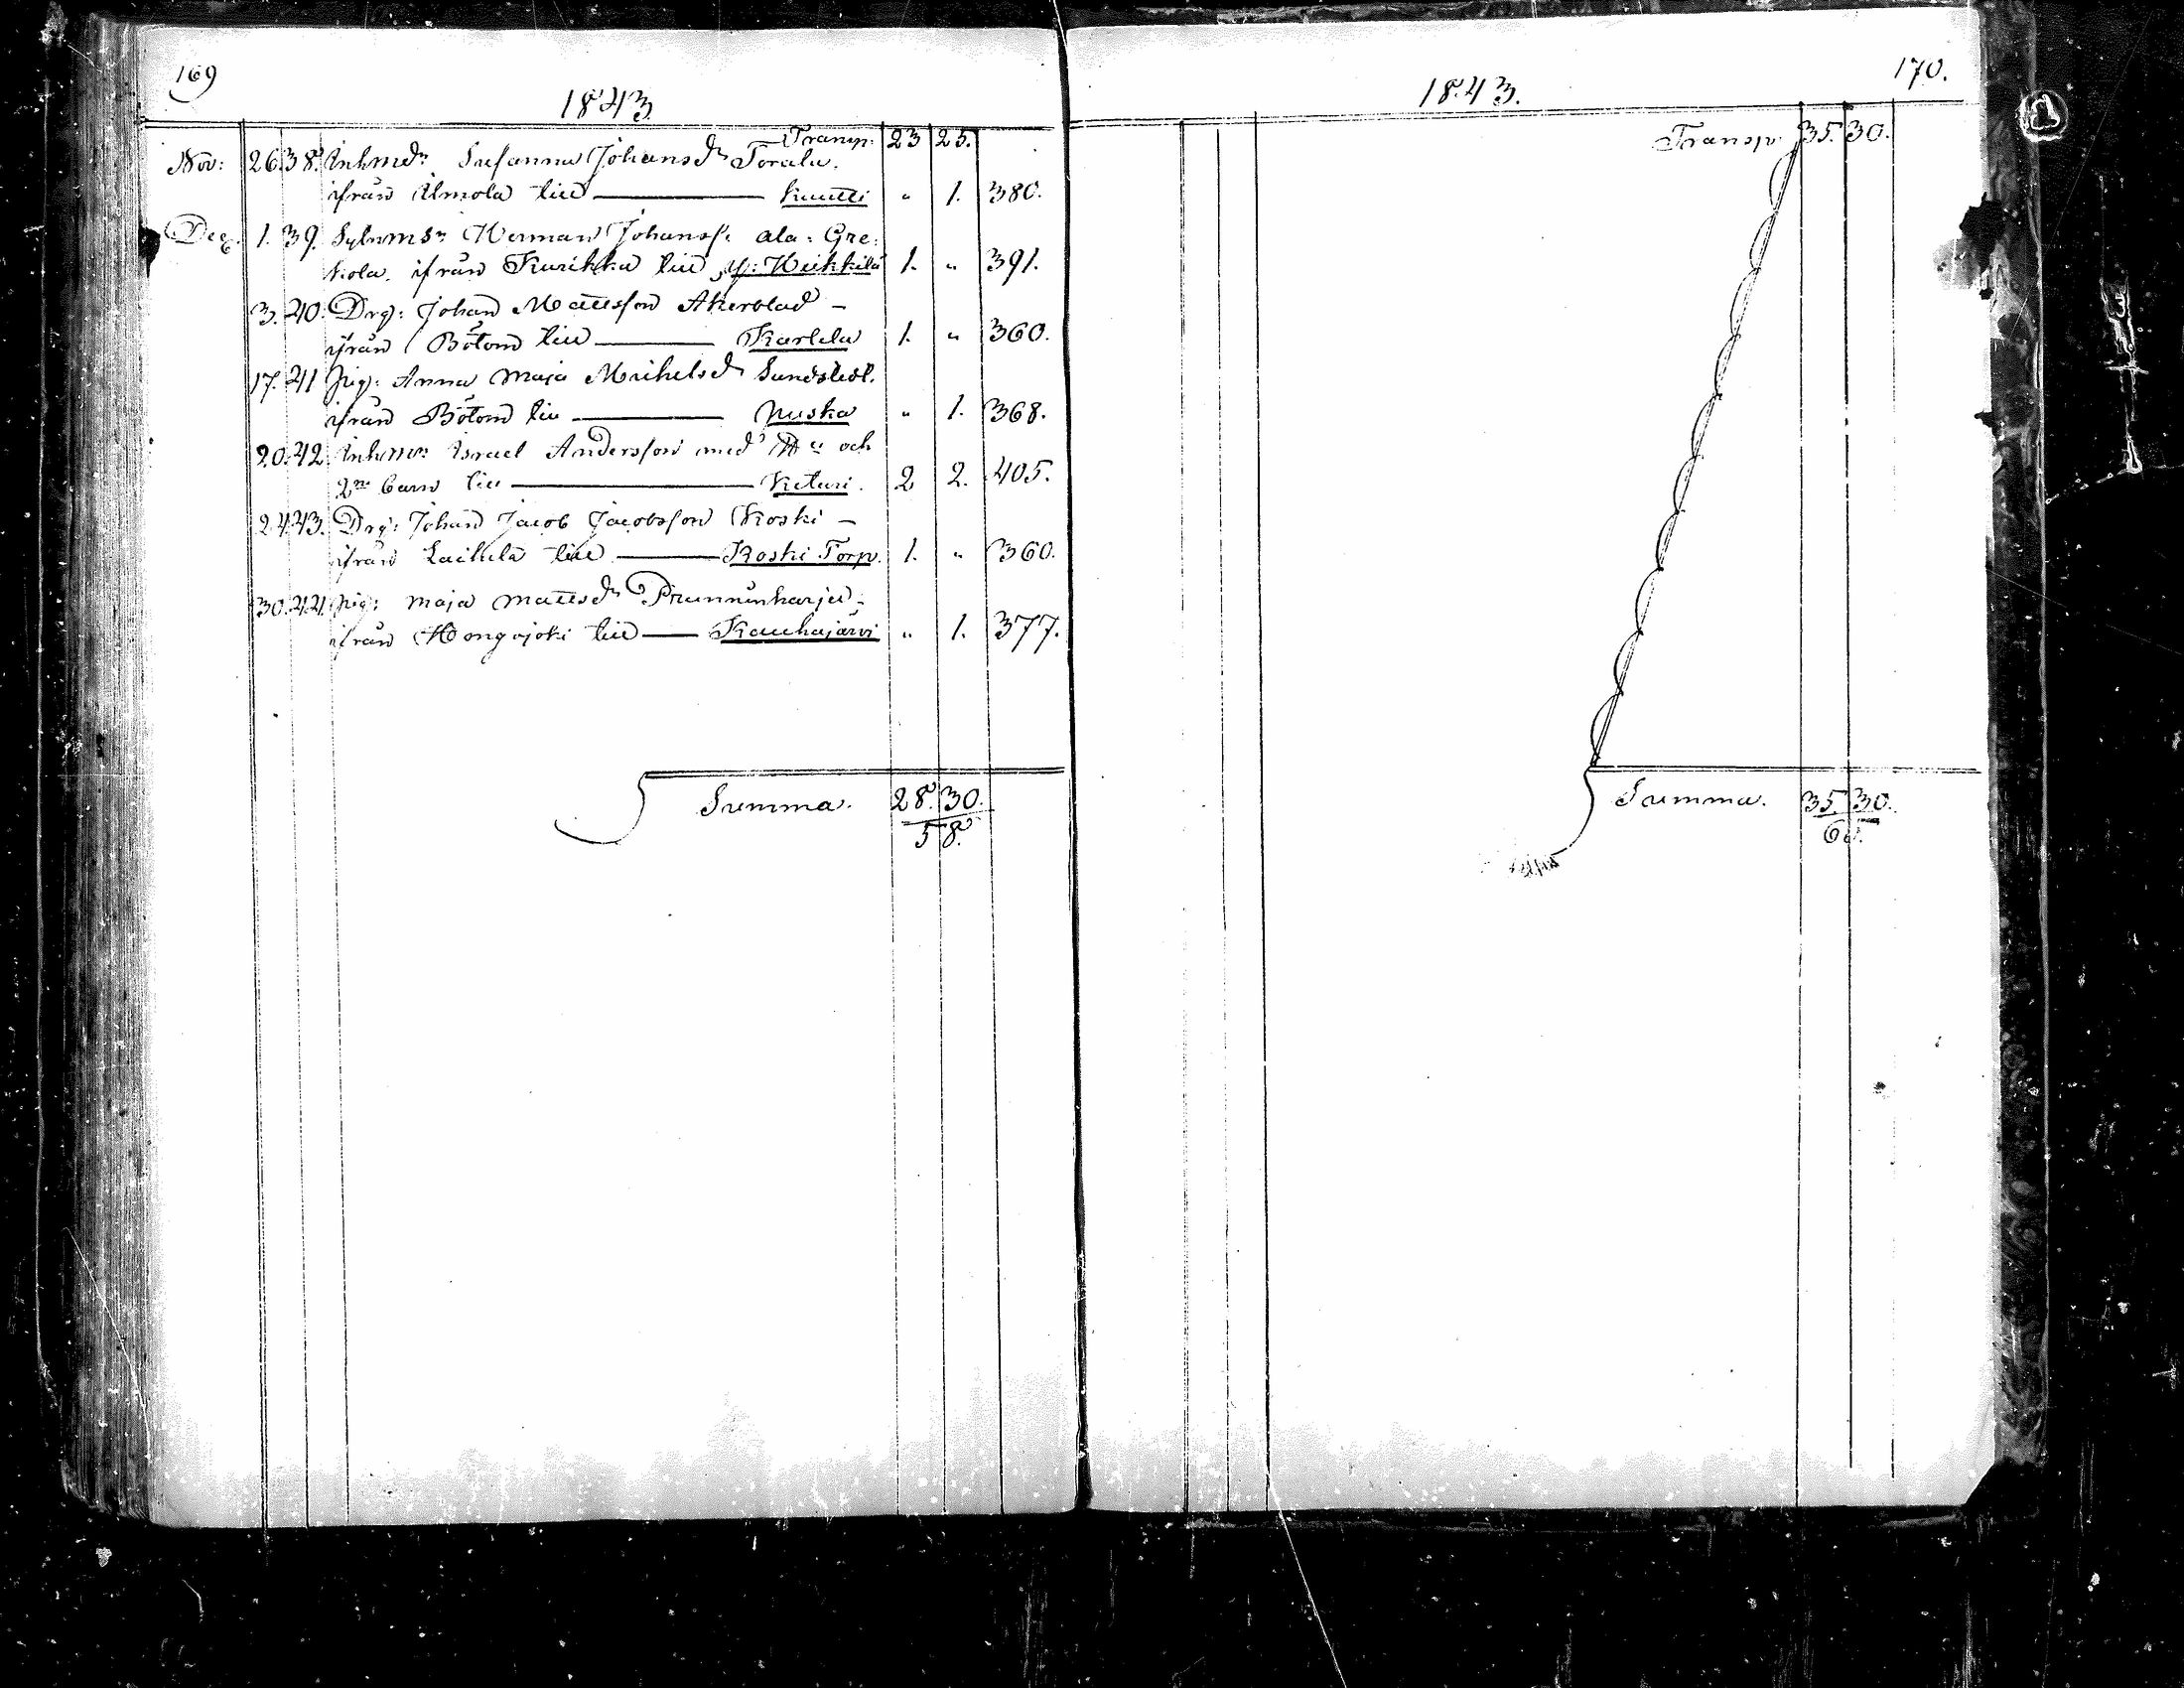 169
1843.
Transp: 23 25.
Nov: 26. 38. Inhmdr Susanna Johansdr Torala.
ifrån Ilmola till Knutti " 1. 380.
Dec. 1. 39. Sytnmsn Herman Johanss: ala: Gre:
kola. ifrån Kurikka till yf: Heikkilä 1. " 391.
3. 40. Drg: Johan Mattsson Åkerblad –
ifrån Bötom till Karlela 1. " 360.
17. 41 Pig: Anna Maja Michelsdr Sundstedt.
ifrån Bötom till Puska " 1. 368.
20. 42. Inhmn Israel Andersson med H. och
2ne barn till Keturi. 2 2. 405.
24. 43. Drg: Johan Jacob Jacobsson Koski –
ifrån Laihela till Koski Torp. 1. " 360.
30. 44. Pig: Maja Mattsdr Prunninharju –
ifrån Hongojoki till Kauhajärvi " 1. 377.
Summa. 28. 30.
58.
170.
1843.
Transp. 35. 30.
Summa. 35. 30.